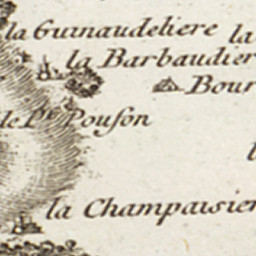 la Guinaudeliere la
la Barbaudier
Bour
le Pt. Pouſon
la Champaisier